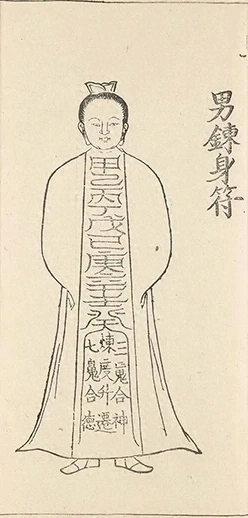 男鍊身符
甲乙丙丁戊己庚辛壬癸
三魂合神
煉度升遷
七魄合德